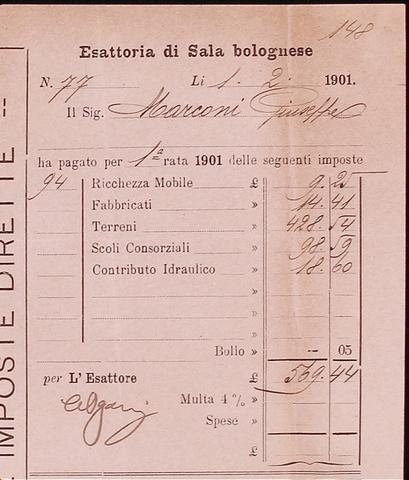 148
Esattoria di Sala bolognese
N. 77 Li 1. 2. 1901.
Il Sig. Marconi Giuseppe
ha pagato per 1ª rata 1901 delle seguenti imposte
94 Ricchezza Mobile £ 9. 25
Fabbricati » 14. 41
Terreni » 428. 54
Scoli Consorziali » 98. 59
Contributo Idraulico » 18. 60
»
»
»
Bollo » -- 05
per L'Esattore £ 569. 44
Multa 4 % »
Spese »
£
IMPOSTE DIRETTE --